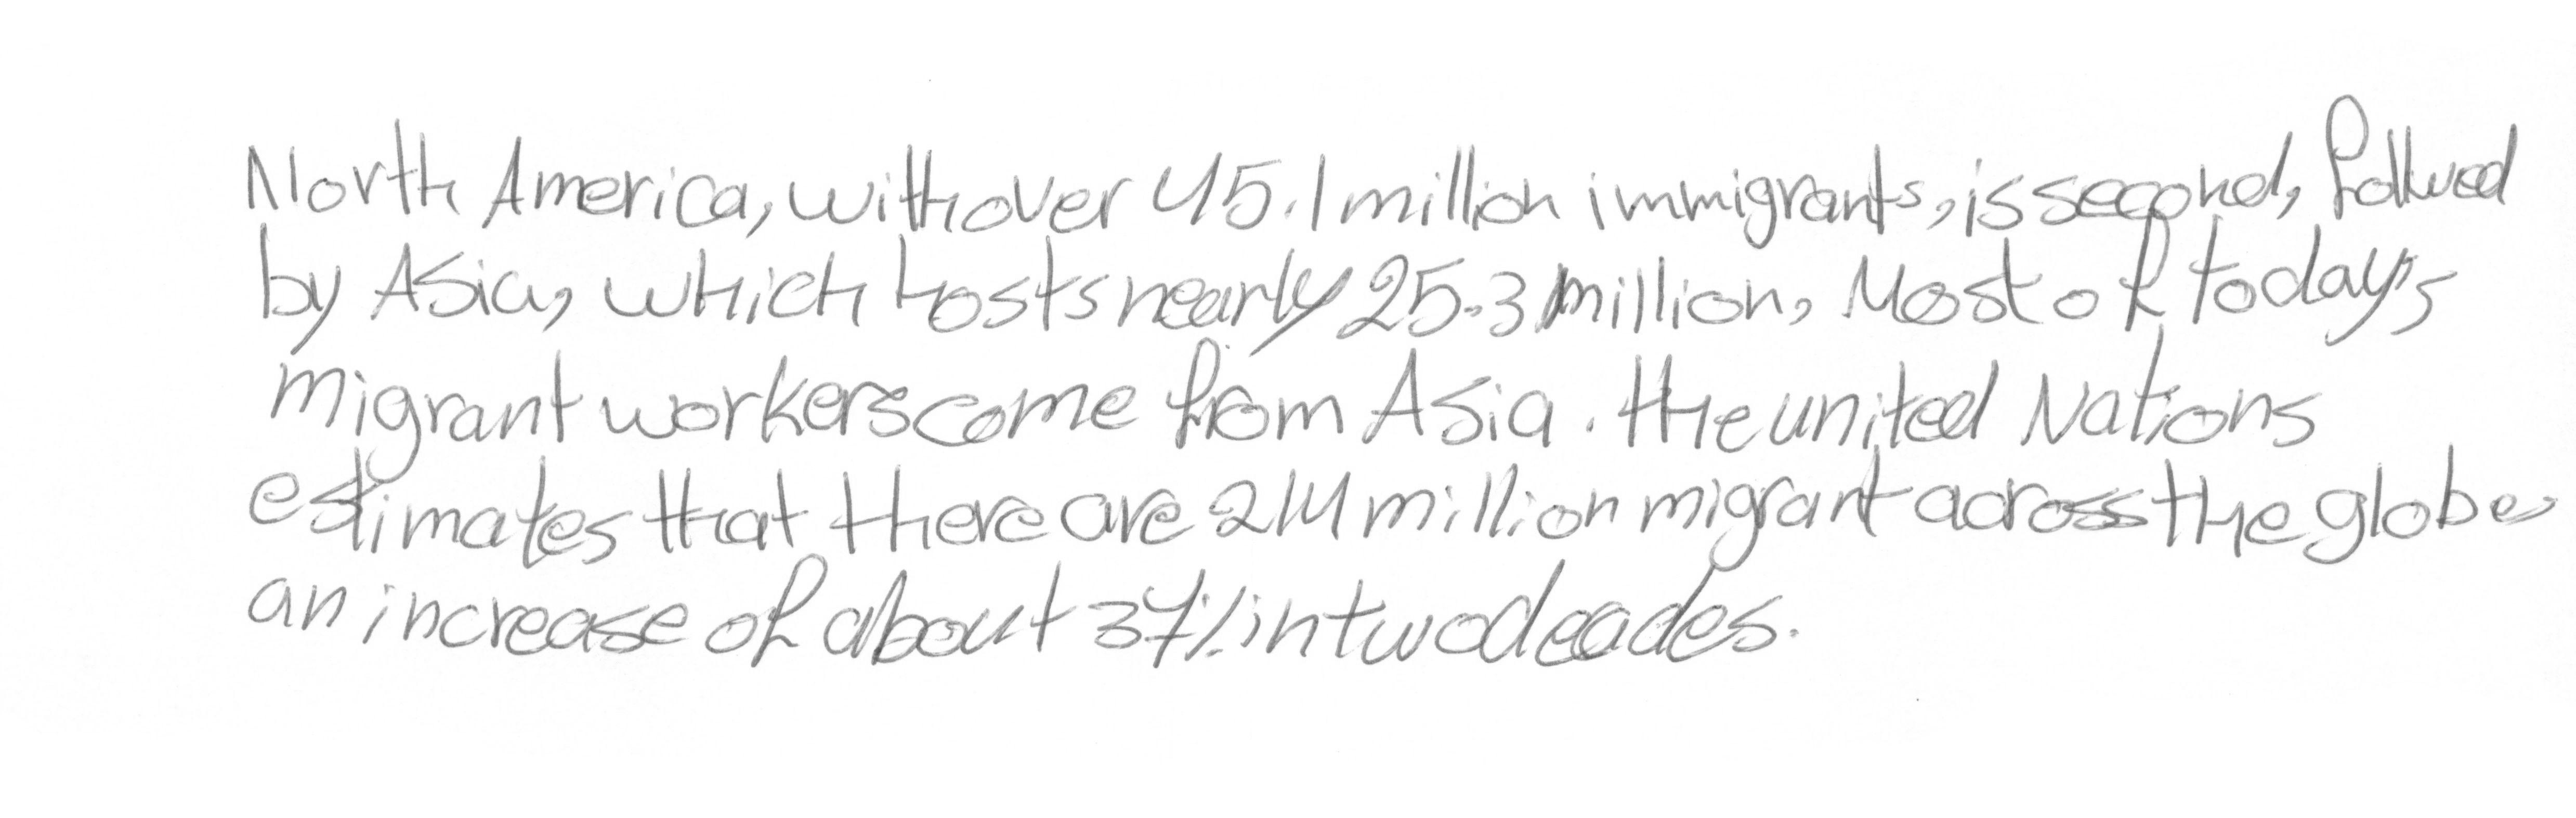 North America, with over 45.1 million immigrants, is second, follwed
by Asia, which hosts nearly 25.3 million, Most of today's
migrant workers come from Asia. the united Nations
estimates that there are 214 million migrant across the globe,
an increase of about 37% in two decades.